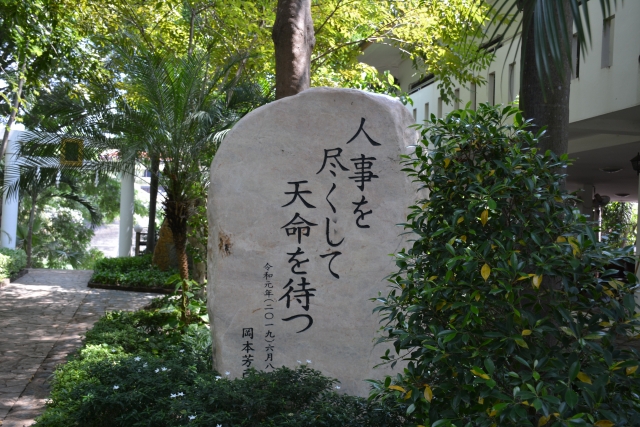 人事を
尽くして
天命を待つ
令和元年(二〇一九)六月八
岡本芳